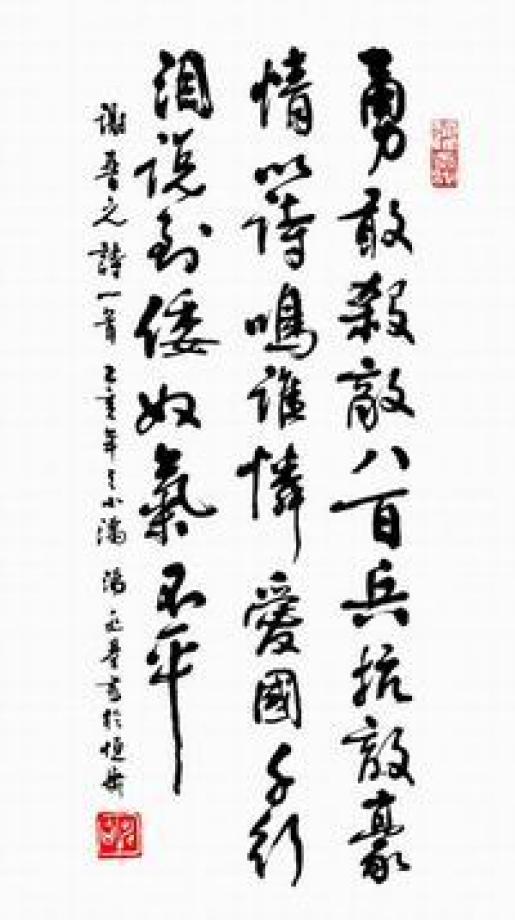 勇敢殺敵八百兵抗敵豪
情以詩鳴誰憐愛國千行
淚說到倭奴氣不平
謝晉元詩一首 己亥年之小滿 湯 書於恒齋